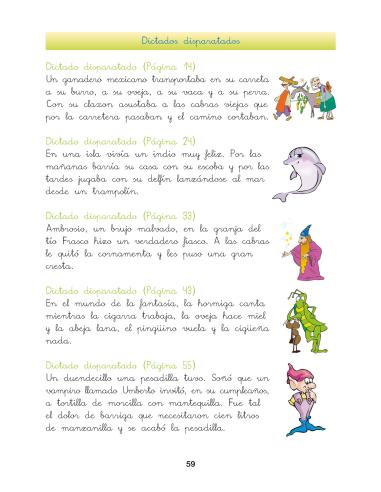 Dictados disparatados
Dictado disparatado (Página 14)
Un ganadero mexicano transportaba en su carreta
a su burro, a su oveja, a su vaca y a su perra.
Con su claxon asustaba a las cabras viejas que
por la carretera pasaban y el camino cortaban.
Dictado disparatado (Página 24)
En una isla vivía un indio muy feliz. Por las
mañanas barría su casa con su escoba y por las
tardes jugaba con su delfín lanzándose al mar
desde un trampolín.
Dictado disparatado (Página 33)
Ambrosio, un brujo malvado, en la granja del
tío Frasco hizo un verdadero fiasco. A las cabras
le quitó la cornamenta y les puso una gran
cresta.
Dictado disparatado (Página 43)
En el mundo de la fantasía, la hormiga canta
mientras la cigarra trabaja, la oveja hace miel
y la abeja lana, el pingüino vuela y la cigüeña
nada.
Dictado disparatado (Página 55)
Un duendecillo una pesadilla tuvo. Soñó que un
vampiro llamado Umberto invitó, en su cumpleaños,
a tortilla de morcilla con mantequilla. Fue tal
el dolor de barriga que necesitaron cien litros
de manzanilla y se acabó la pesadilla.
59